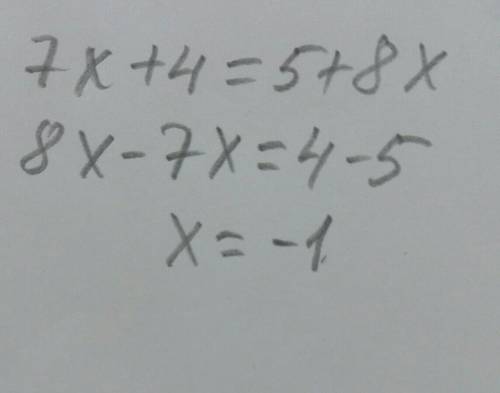 7x+4=5+8x
8x-7x=4-5
x=-1